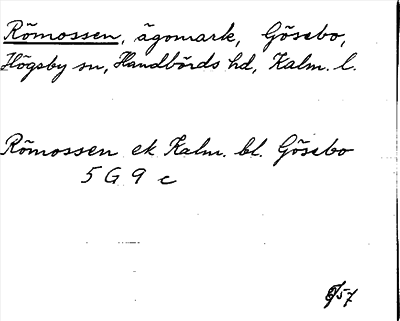 Römossen, ägomark, Gösebo,
Högsby sn, Handbörds hd, Kalm. l.
Römossen ek Kalm. bl. Gösebo
5 G 9 c